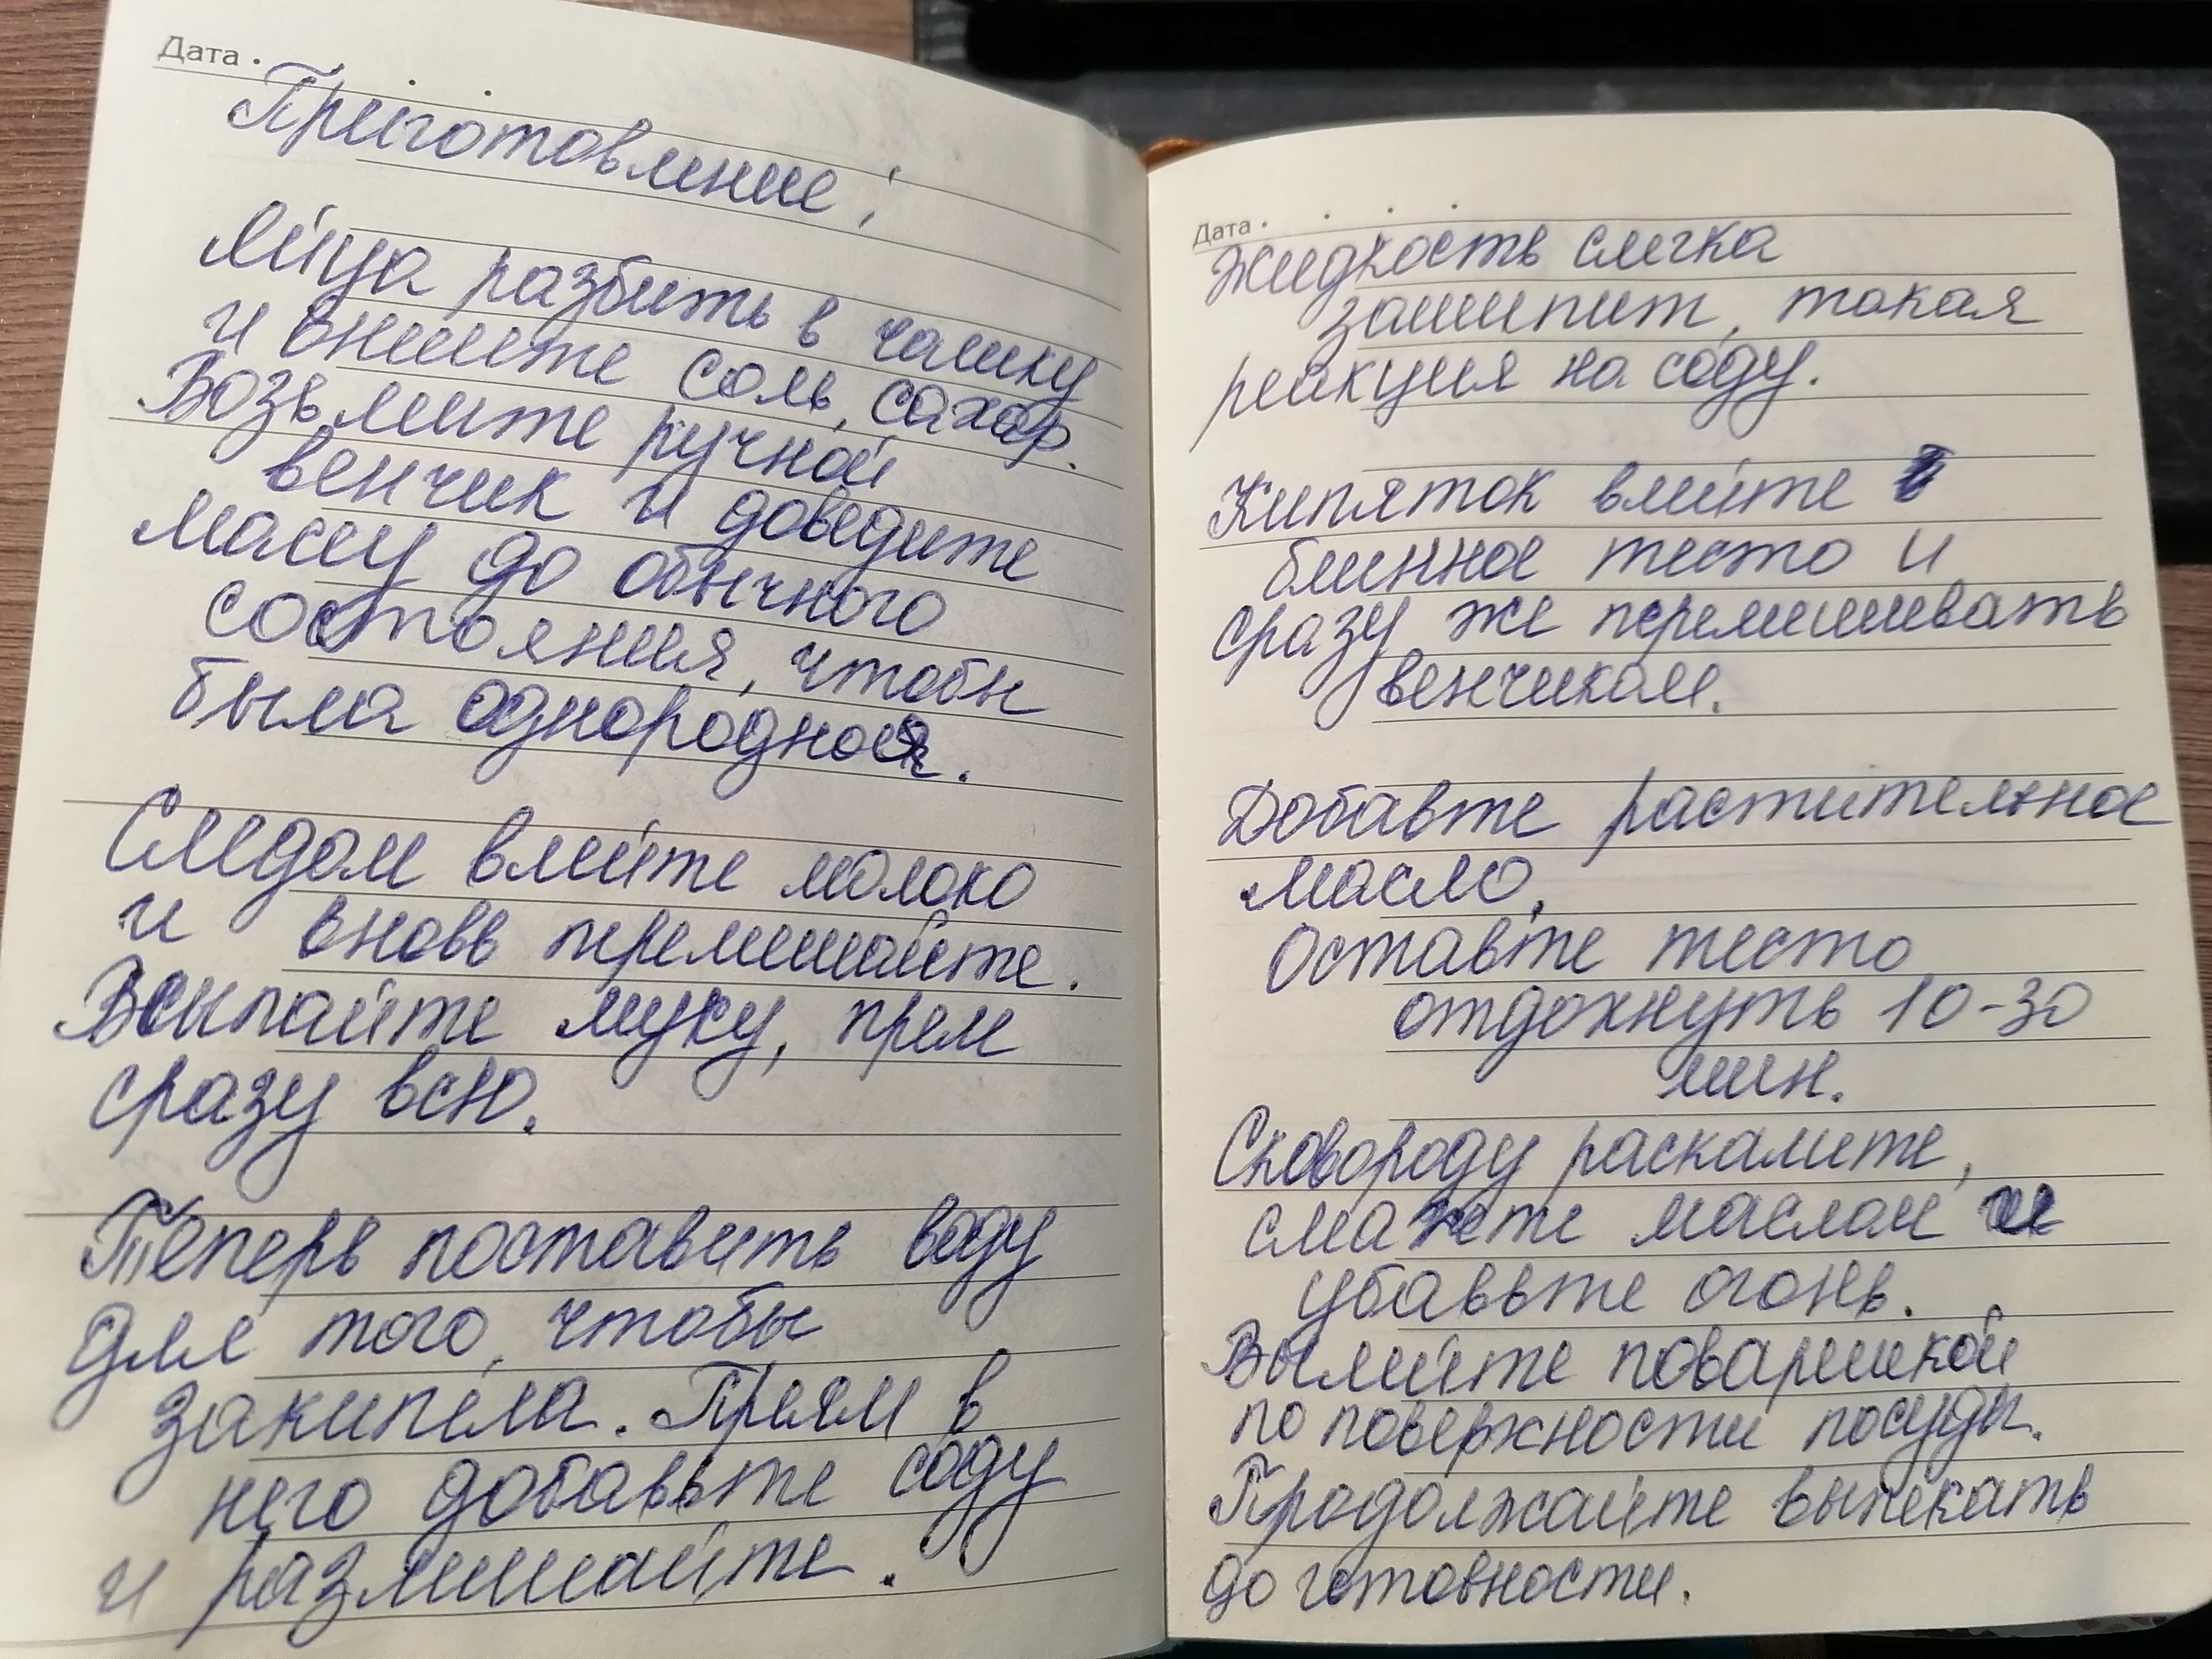 Дата
Приготовление:
Яйца разбить в чашку
и внесите соль, сахар.
Возьмите ручной
венчик и доведите
массу до обычного
состояния, чтобы
была однородноя.
Следом влейте молоко
и вновь перемешайте.
Всыпайте муку, прям
сразу всю.
Теперь поставить воду
для того, чтобы
закипела. Прям в
него добавьте соду
и размешайте.
Дата
Жидкость слегка
зашипит, такая
реакция на соду.
Кипяток влейте
блинное тесто и
сразу же перемешивать
венчиком.
Добавте растительное
масло.
Оставте тесто
отдохнуть 10-30
мин.
Сковороду раскалите,
смажте маслом и
убавьте огонь.
Вылийте поварешкой
по поверхности посуды.
Продолжайте выпекать
до готовности.